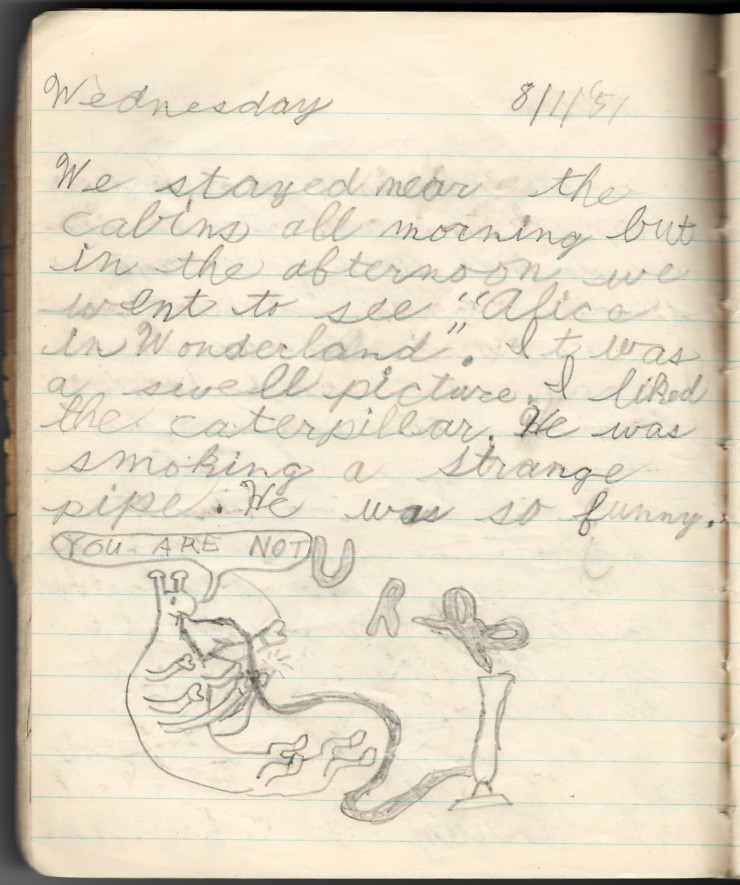 Wednesday 8/1/'51
We stayed near the
cabins all morning but
in the afternoon we
went to see "Alice
in Wonderland". It was
a swell picture. I liked
the caterpillar. He was
smoking a strange
pipe. He was so funny.
YOU ARE NOT U
R